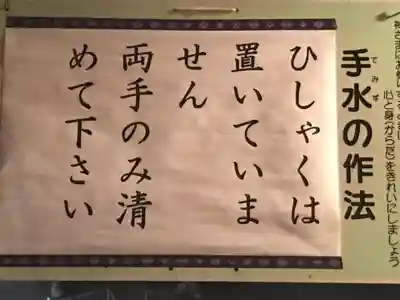 手水の作法
てみず
心と身(からだ)をきれいにしましょう
ひしゃくは
置いていま
せん
両手のみ清
めて下さい